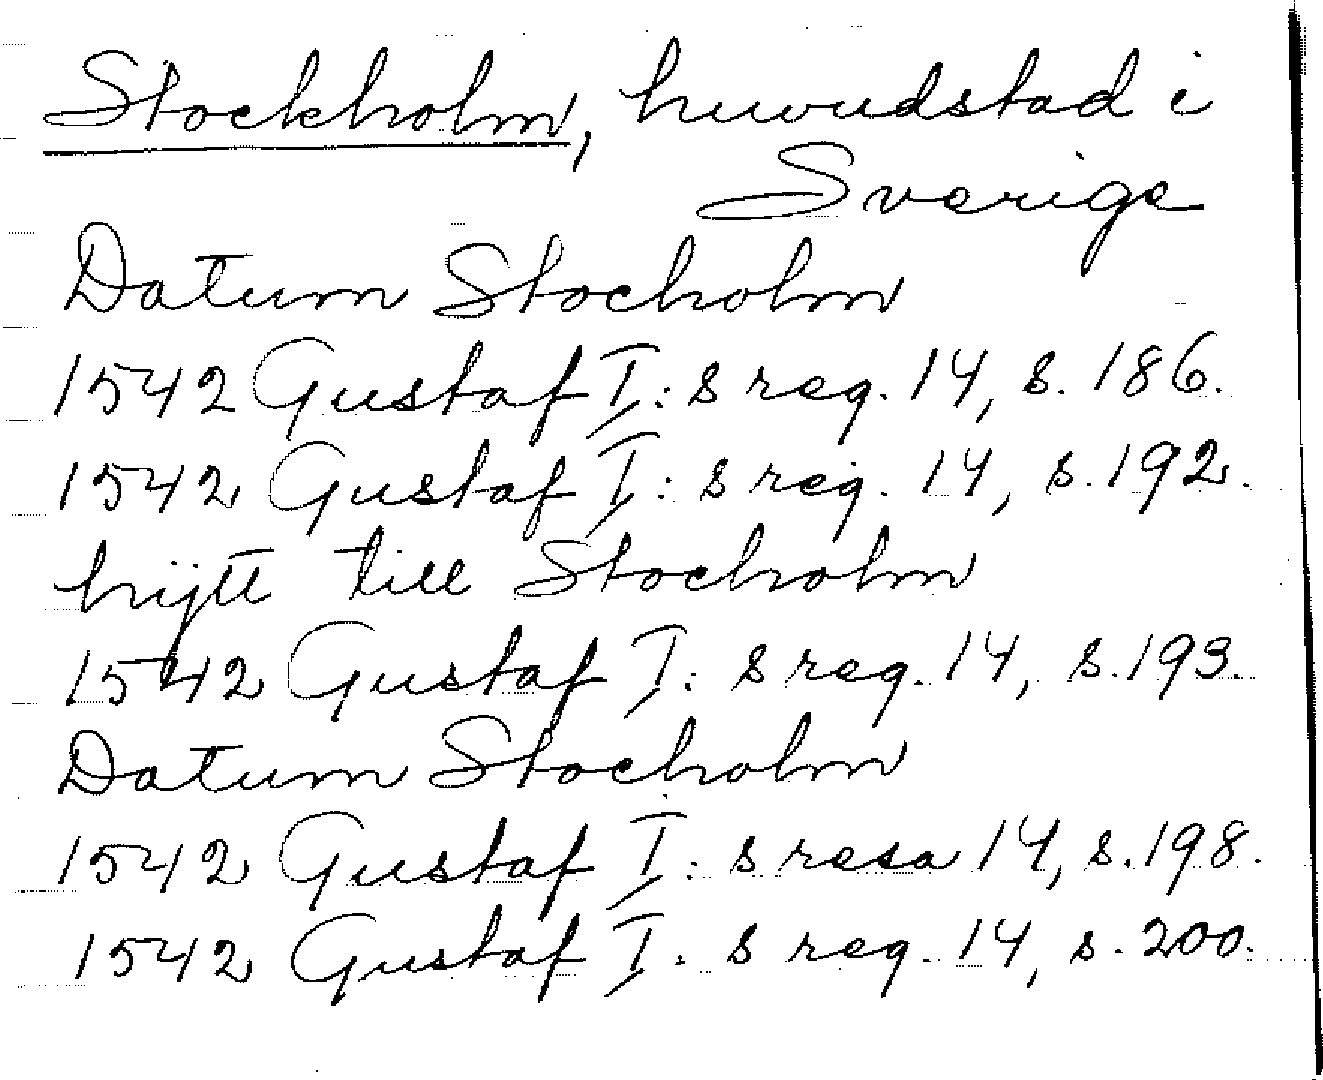 Stockholm, huvudstad i
Sverige
Datum Stocholm
1542 Gustaf I:s reg. 14, s. 186.
1542 Gustaf I:s reg. 14, s. 192.
hijtt till Stocholm
1542 Gustaf I:s reg. 14, s. 193.
Datum Stocholm
1542 Gustaf I:s resa 14, s. 198.
1542 Gustaf I:s reg. 14, s. 200.